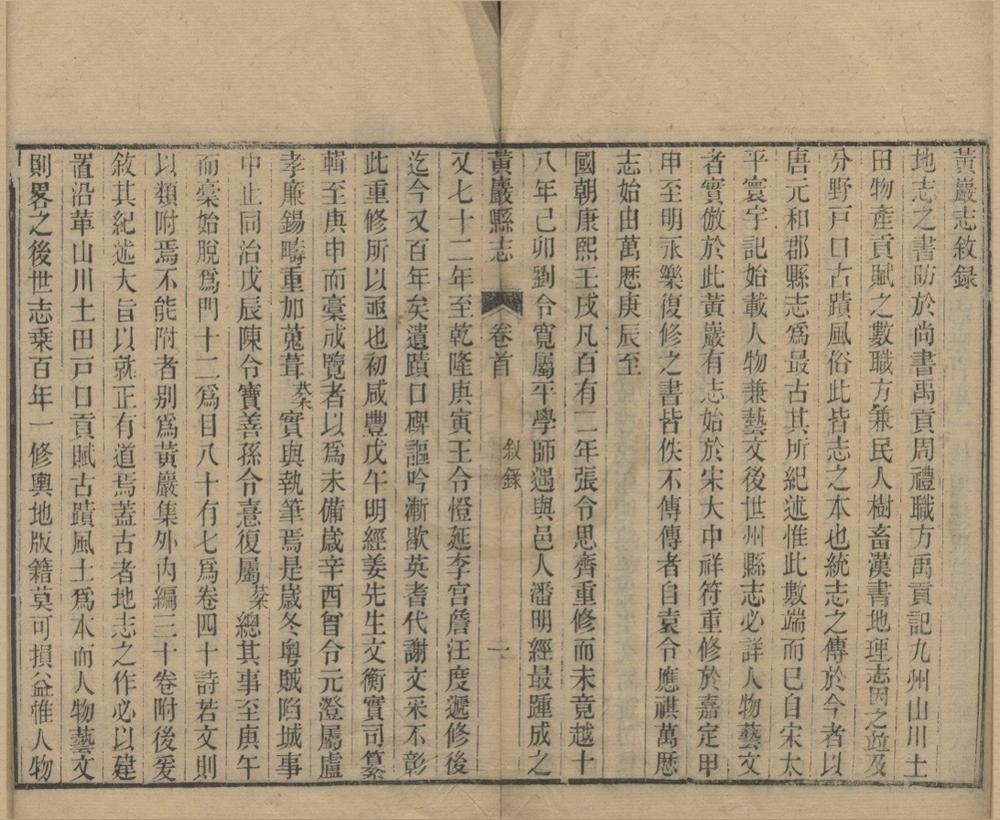 黃巖志敘録
地志之書昉於尚書禹貢周禮職方禹貢記九州山川土
田物產貢賦之數職方兼民人樹畜漢書地理志因之竝及
分野戸口古蹟風俗此皆志之本也統志之傳於今者以
唐元和郡縣志爲最古其所紀述惟此數端而巳自宋太
平寰宇記始載人物兼藝文後世州縣志必詳人物藝文
者實倣於此黃巖有志始於宋大中祥符重修於嘉定甲
申至明永樂復修之書皆佚不傳傳者自袁令應祺萬厯
志始由萬厯庚辰至
國朝康熙壬戌凡百有二年張令思齊重修而未竟越十
八年己卯劉令寬屬平學師遇與邑人潘明經最踵成之
黃巖縣志
卷首
敘録
一
又七十二年至乾隆庚寅王令憕延李宮詹汪度遞修後
迄今又百年矣遺蹟口碑謳吟漸歇英耆代謝文采不彰
此重修所以亟也初咸豐戊午明經姜先生文衡實司纂
輯至庚申而稾成覽者以爲未備歲辛酉曾令元澄屬盧
孝廉錫疇重加蒐葺棻實與執筆焉是歲冬粵賊陷城事
中止同治戊辰陳令寶善孫令憙復屬棻總其事至庚午
而稾始脫爲門十二爲目八十有七爲卷四十詩若文則
以類附焉不能附者别爲黃巖集外內編三十卷附後爰
敘其紀述大旨以就正有道焉蓋古者地志之作必以建
置沿革山川土田戸口貢賦古蹟風土爲本而人物藝文
則畧之後世志乘百年一修輿地版籍莫可損益惟人物